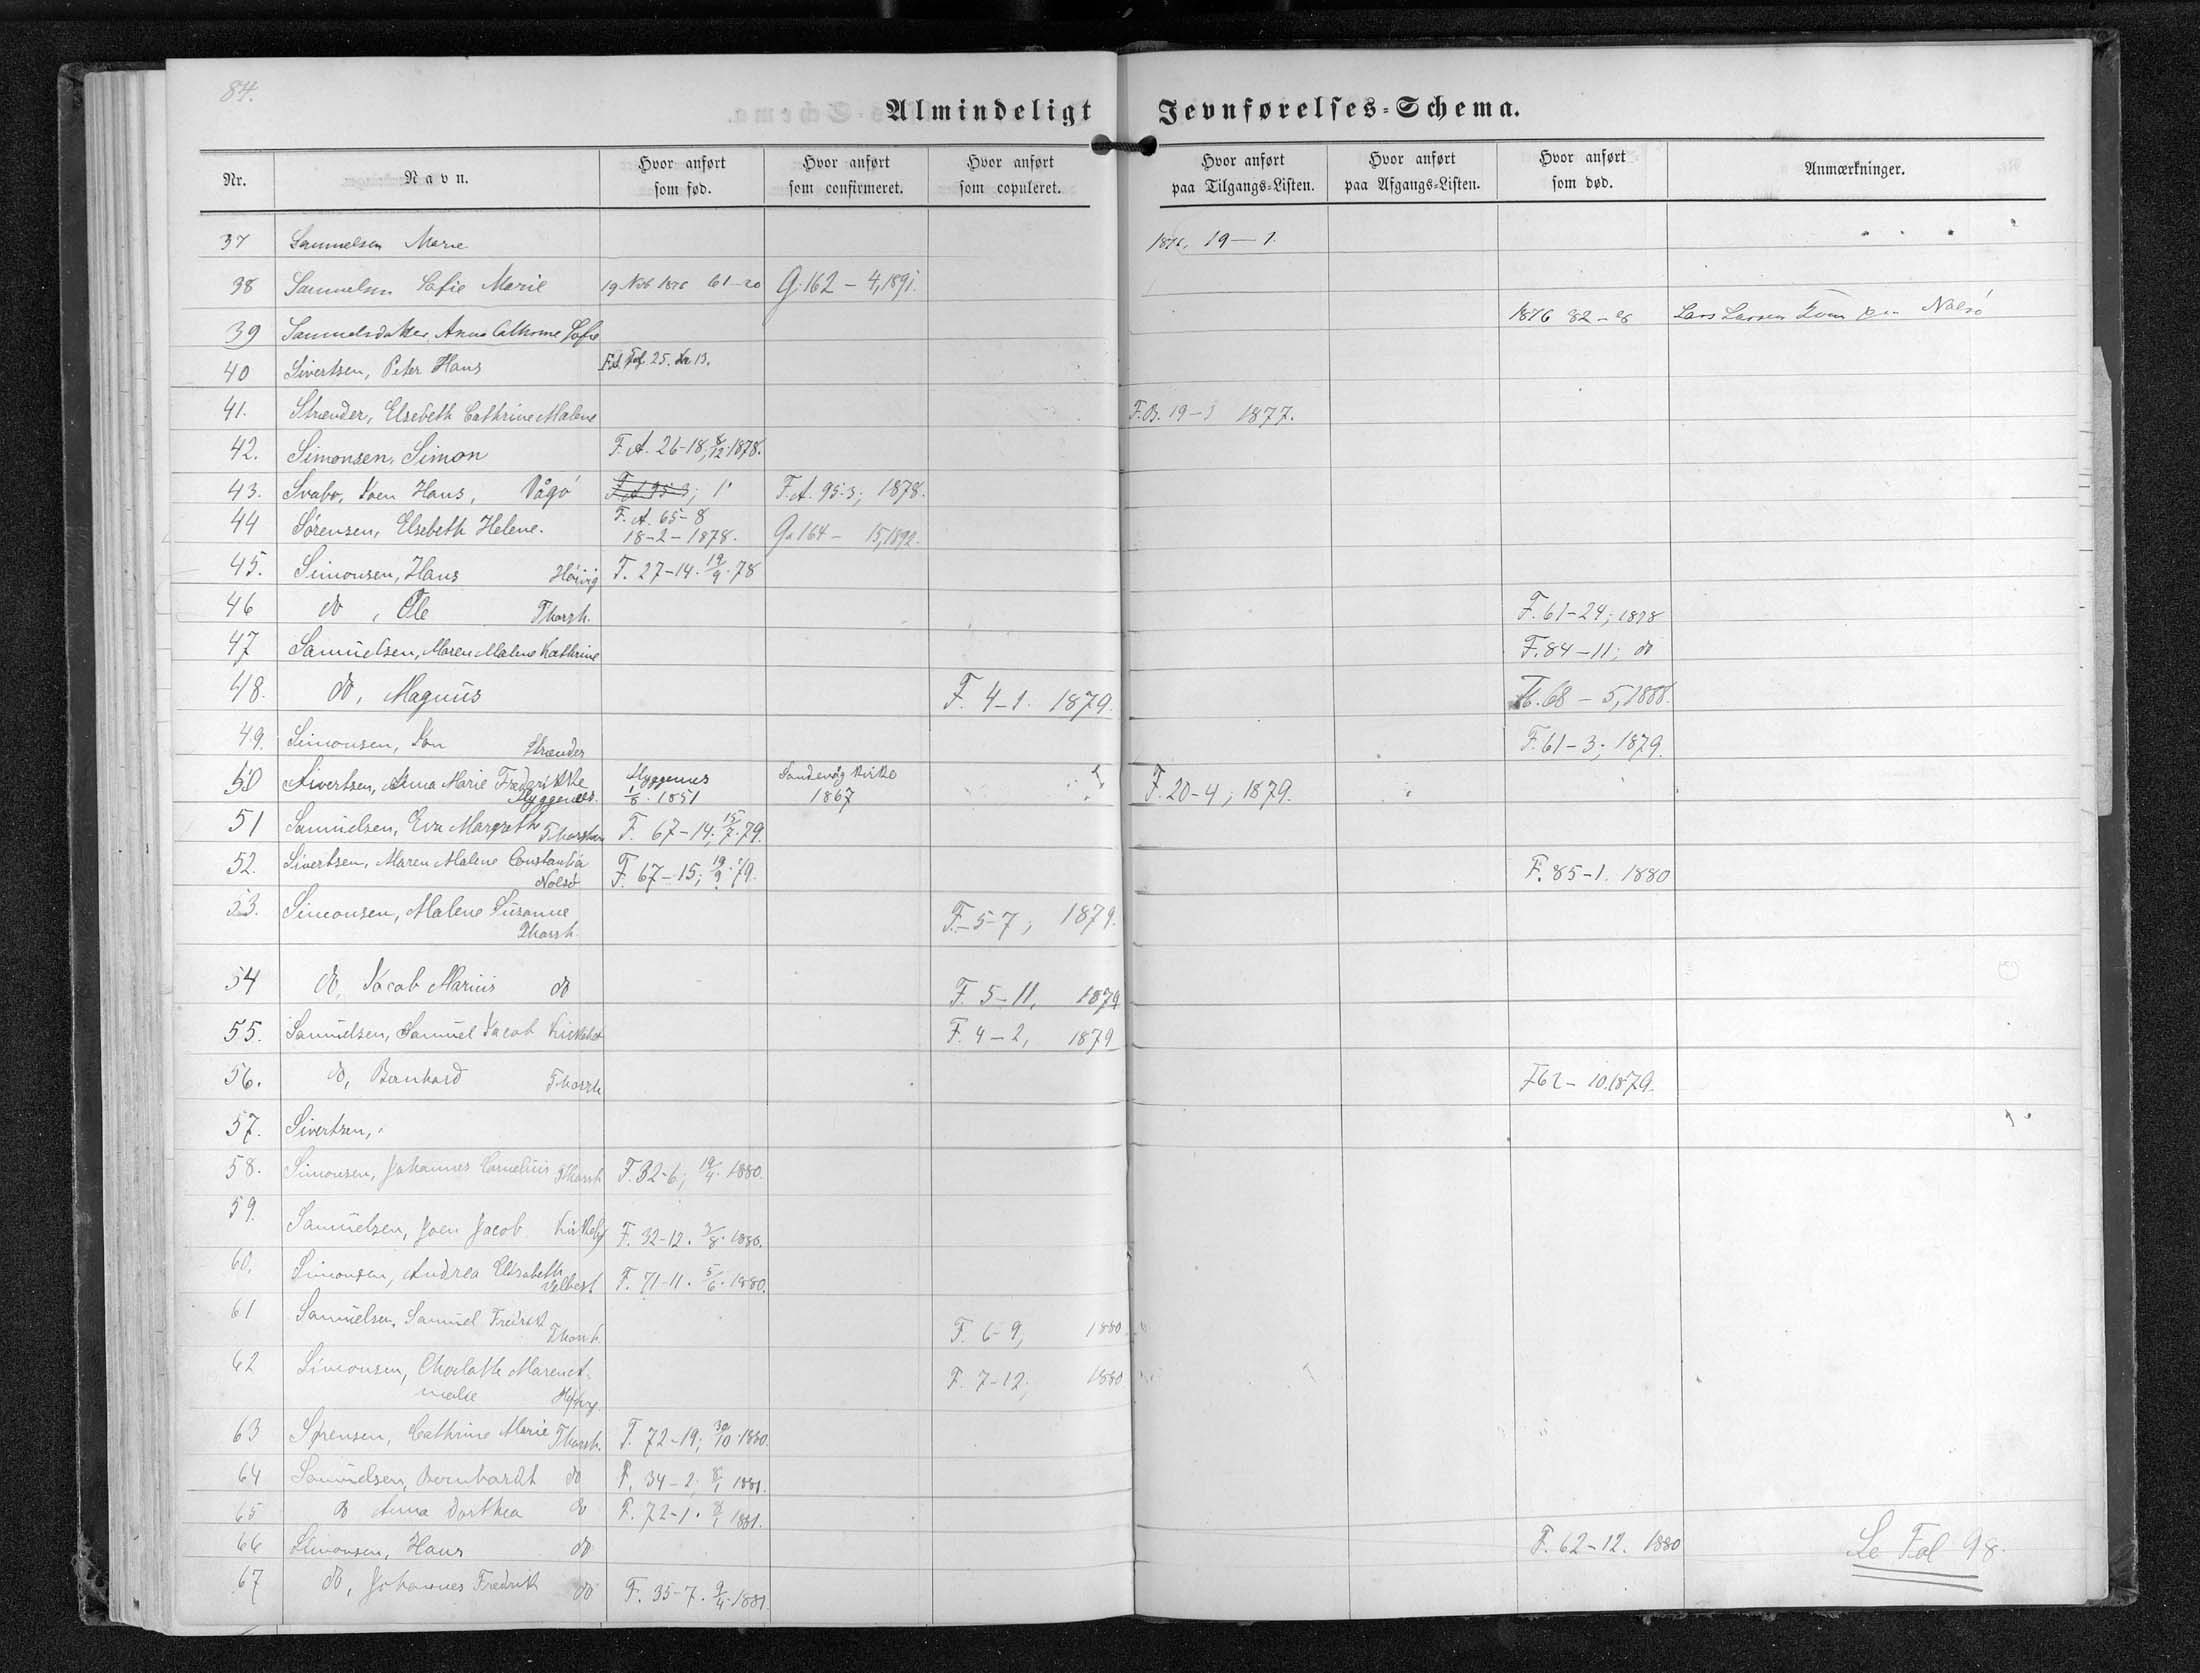 84.
Almindeligt Jevnførelses-Schema.
Nr. Navn. Hvor anført som fød. Hvor anført som confirmeret. Hvor anført som copuleret. Hvor anført paa Tilgangs-Listen. Hvor anført paa Afgangs-Listen. Hvor anført som død. Anmærkninger.
37 Samuelsen Marie 1876, 19-1.
38 Samuelsen Sofie Marie 19 Nvb 1876 61-20 G.162 - 4, 1891.
39 Samuelsdatter, Anna Cathrine Sofie 1876 82-28 Lars Larsen Nolsö
40 Sivertsen, Peter Hans Fol. 25. Nr 13.
41. Strænder, Elsebeth Cathrine Malene F.B. 19-3 1877.
42. Simonsen, Simon F.A. 26-18; 8/12 1878.
43. Svabo, Joen Hans, Vågö F.A. 95-3; 1 F.A. 95-3; 1878.
44 Sörensen, Elsebeth Helene. F.A. 65-8
18-2-1878. G. 164 - 15, 1892.
45. Simonsen, Hans Höivig F. 27-14. 19/9. 78
46 do, Ole Thorsh. F. 61-24; 1878
47 Samuelsen, Maren Malene Kathrine F. 84-11; do
48. do, Magnus F. 4-1. 1879. 68-5, 1888.
49. Simonsen, Jon Strænder F. 61-3; 1879.
50 Sivertsen, Anna Marie Frederikke
Myggenes. Myggenes
1/8. 1851 Sandevåg Kirke
1867 F. 20-4; 1879.
51 Samuelsen, Eva Margrethe Thorshavn F. 67-14; 15/7. 79.
52. Sivertsen, Maren Malene Constantia
Nolsö F. 67-15; 19/9. 79. F. 85-1. 1880
53. Simonsen, Malene Susanne
Thorsh. F. 5-7; 1879.
54 do, Jacob Marius do F. 5-11, 1879
55. Samuelsen, Samuel Jacob Kirkebö F. 4-2, 1879
56. do, Bernhard Thorsh F62-10.1879.
57. Sivertsen,
58. Simonsen, Johannes Cornelius Thorsh F. 32-6; 19/4. 1880.
59. Samuelsen, Joen Jacob Kirkeby F. 32-12. 3/8. 1880.
60. Simonsen, Andrea Elisabeth
Velbest F. 71-11. 5/6. 1880.
61 Samuelsen, Samuel Fredrik
Thorsh. F. 6-9, 1880
62 Simonsen, Charlotte Maren A-
malie F. 7-12; 1880
63 Sørensen, Cathrine Marie Thorsh. F. 72-19; 30/10. 1880.
64 Samuelsen, Bernhardt do F. 34-2; 8/1 1881.
65 do Anna Dorthea do F. 72-1. 8/1 1881.
66 Simonsen, Hans do F. 62-12. 1880 Se Fol 98.
67 do, Johannes Fredrik do F. 35-7. 9/4. 1881.